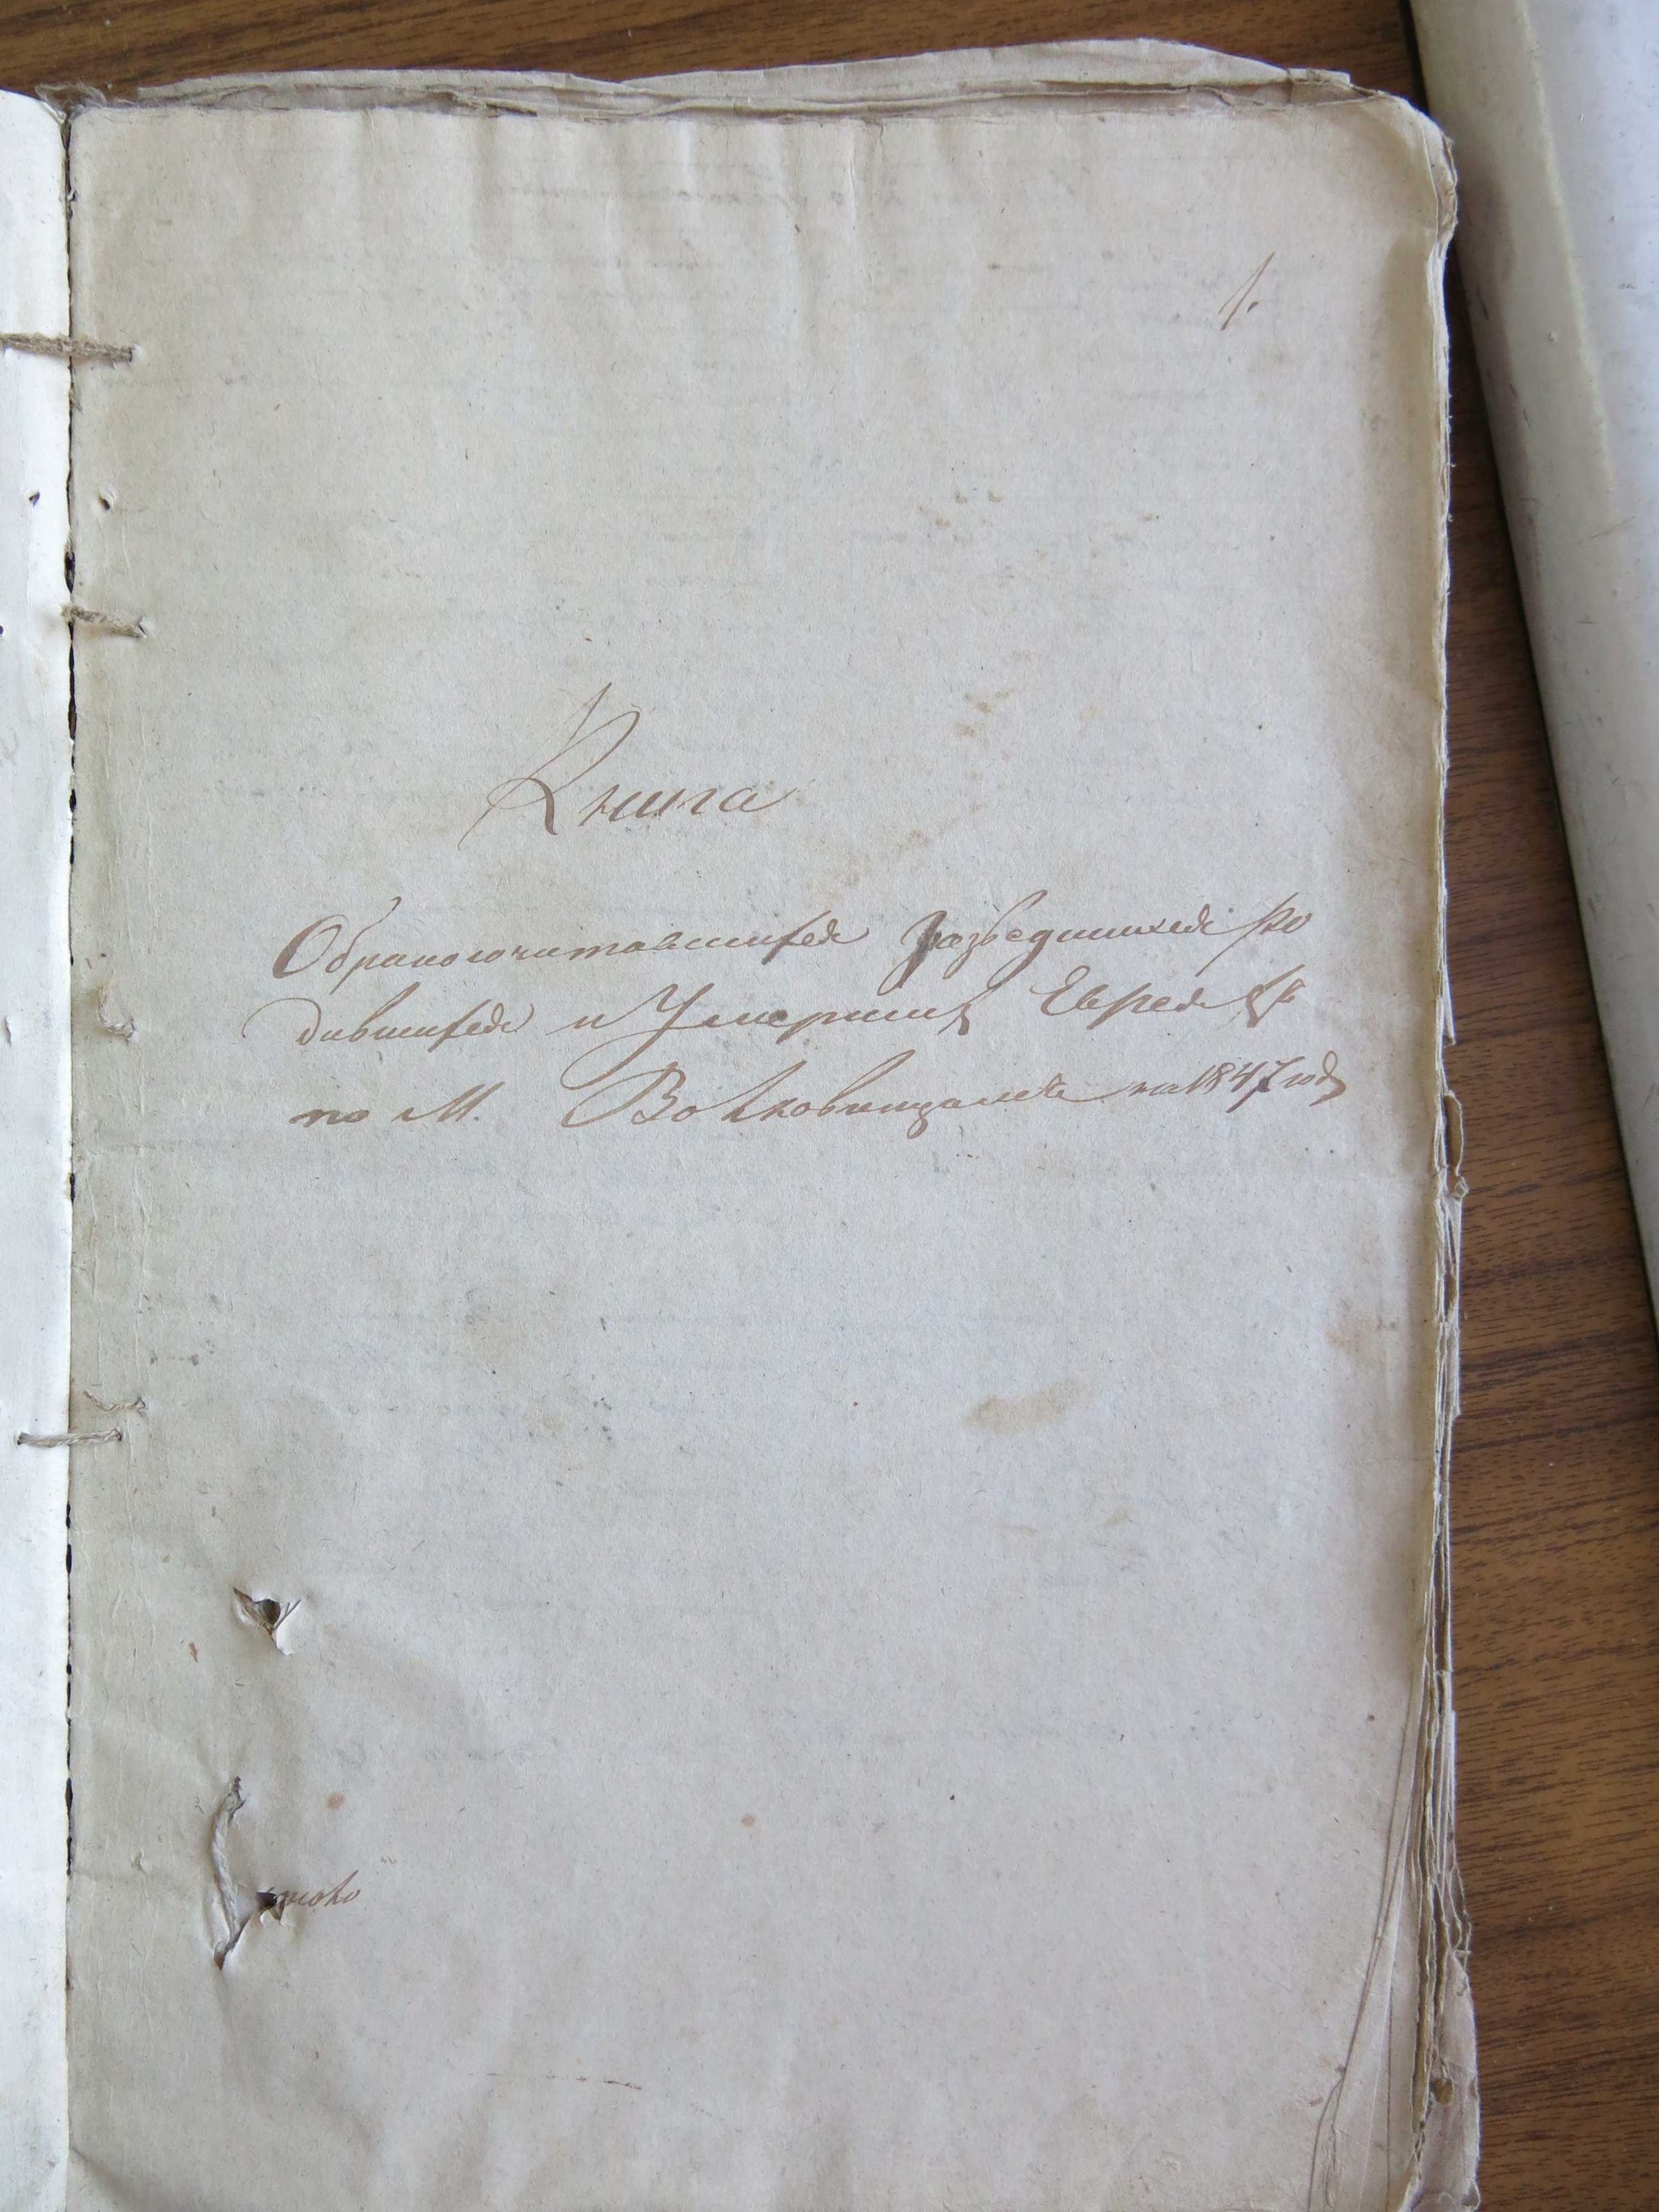 1.
Книга
Обракосочитавшихся разведшихся ро
дившихся и Умерших Евреях
по М. Волковинцамъ на 1847 годъ